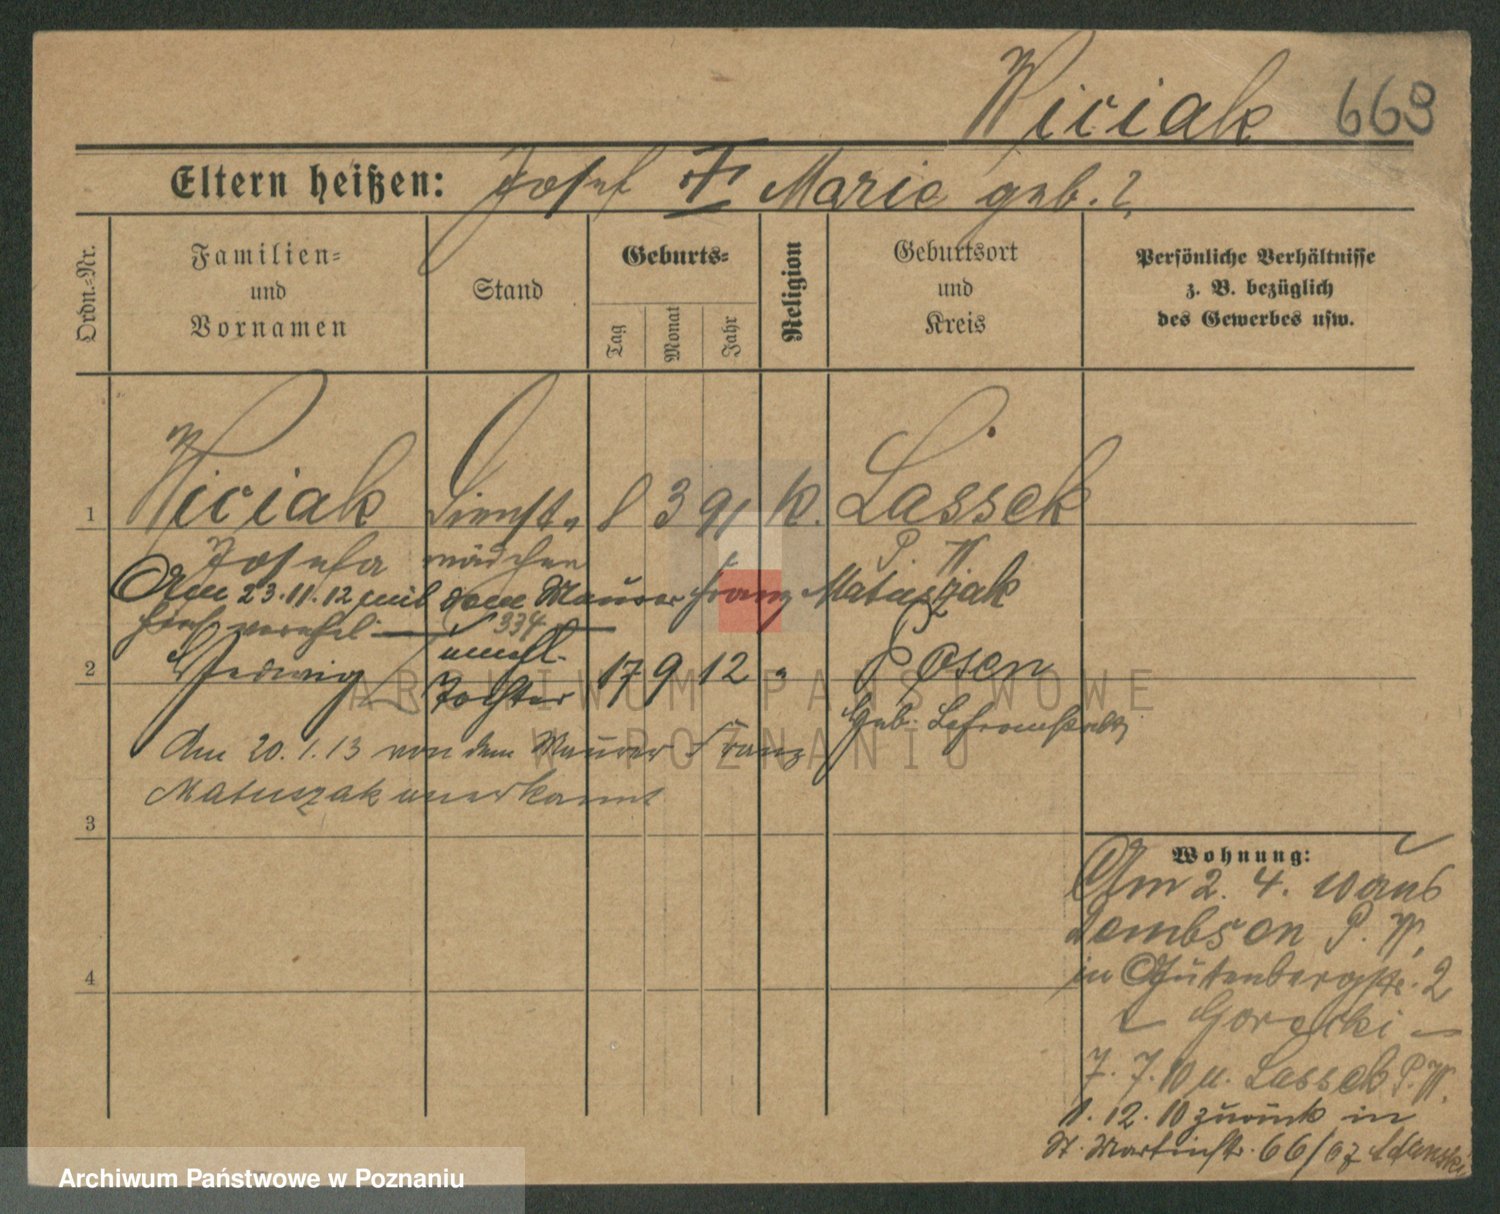 Wiciak 669
Eltern heißen: Josef † Marie geb. ?
Ordn.=Nr.
Familien=
und
Vornamen
Stand
Geburts=
Tag
Monat
Jahr
Religion
Geburtsort
und
Kreis
Persönliche Verhältnisse
z. B. bezüglich
des Gewerbes usw.
1 Wiciak Dienst= 8 3 91 k. Lassek
Josefa mädchen P. W.
Am 23.11.12 mit dem Maurer Franz Matuszak
verehel. 334
unehl.
2 Hedwig Tochter 17 9 12 " Posen
Geb.
Am 20.1.13 von dem Maurer Franz
Matuszak anerkannt
3
4
Wohnung:
Am 2. 4. 10 aus
Dembsen P. W.
in Gutenbergstr. 2
Gorecki
7. 7. 10 n. Lassek P. W.
1. 12. 10 zurück in
St. Martinstr. 66/67
ARCHIWUM PAŃSTWOWE
W POZNANIU
Archiwum Państwowe w Poznaniu